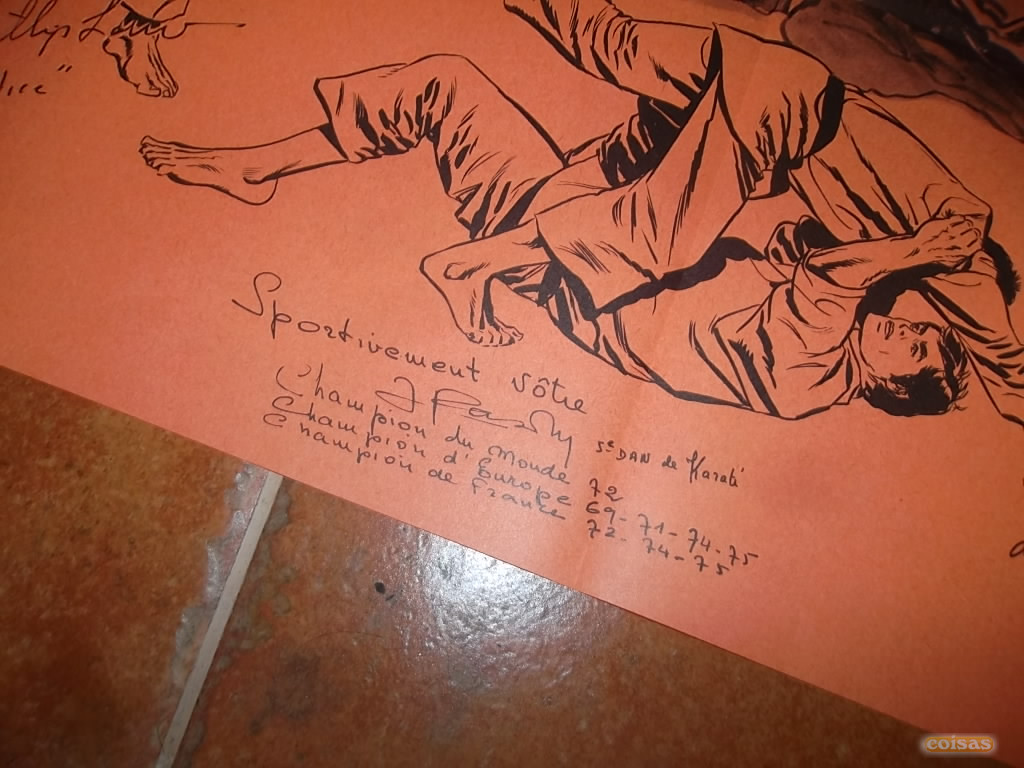 Sportivement vôtre
5e DAN de Karaté
Champion du Monde 72
Champion d'Europe 69-71-74-75
Champion de France 72-74-75
coisas